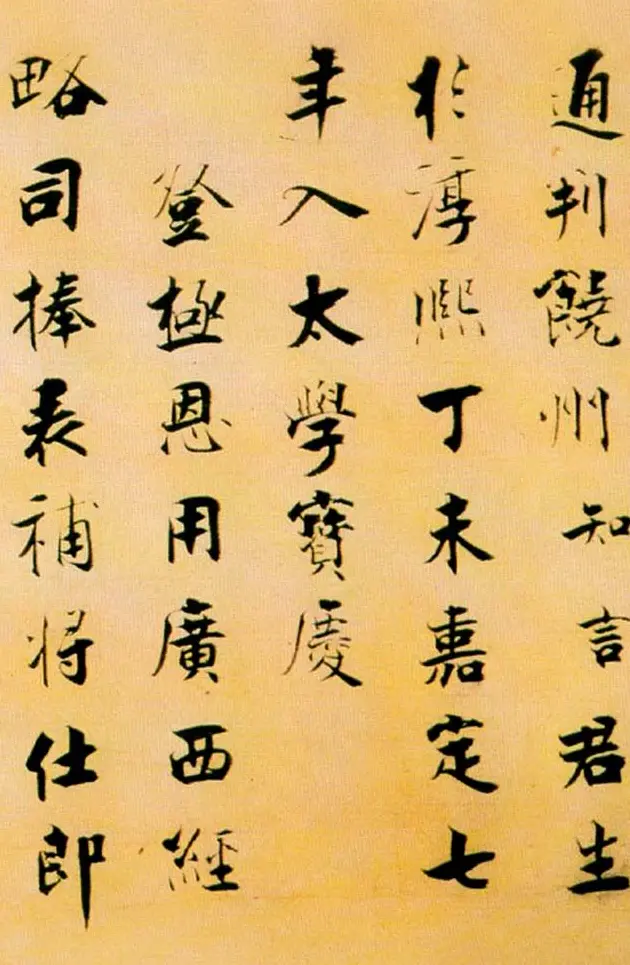 通判饒州知言君生
於淳熙丁未嘉定七
年入太學寶慶
登極恩用廣西經
略司捧表補將仕郎